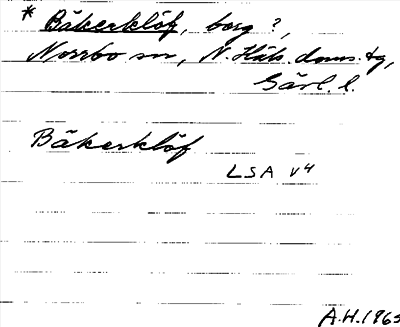 * Bäkerklöf, borg ?,
Norrbo sn, N. Häls. doms. tg,
Gävl. l.
Bäkerklöf
LSA V4
A.H. 1965